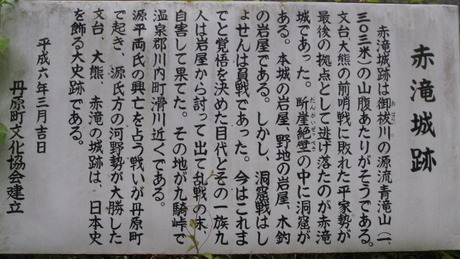 赤滝城跡
赤滝城跡は御祓川の源流青滝山(一、
三〇三米)の山腹あたりがそうである。
文台大熊の前哨戦に敗れた平家勢が
最後の拠点として逃げ落たのが赤滝
城であった。断崖絶壁の中に洞窟が
ある。本城の岩屋、野地の岩屋、木釣
の岩屋である。しかし、洞窟戦はし
ょせんは負戦であった。今はこれま
でと覚悟を決めた目代とその一族九
人は岩屋から討って出て乱戦の末、
自害して果てた。その地が九騎峠で
温泉郡川内町滑川近くである。
源平両氏の興亡をとう戦いが丹原町
で起き、源氏方の河野勢が大勝した
文台、大熊、赤滝の城跡は、日本史
を飾る大史跡である。
平成六年三月吉日
丹原町文化協会建立